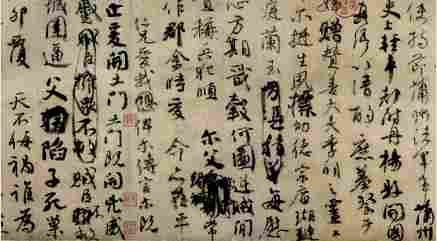 使持節蒲州諸軍事蒲州
史上輕車都尉丹楊縣開國
真卿以清酌庶羞祭
姪贈贊善大夫季明之靈曰
爾挺生夙標幼德宗廟瑚璉
庭蘭玉每慰
心方期戩穀何圖逆賊閒
稱兵犯順爾父常
作郡余時受命亦在平
仁兄愛我俾爾傳言爾既
止爰開土門土門既開凶威
蹙賊臣擁眾不救賊臣不救
城圍逼父陷子死巢
卵覆天不悔禍誰為